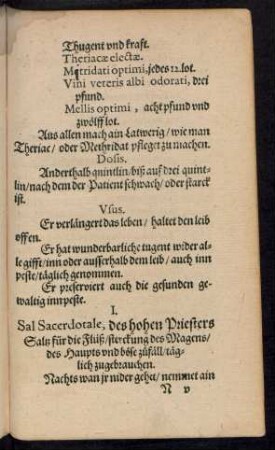 Thugent vnd krafft.
Theriacæ electæ.
Mitridati optimi, jedes 12. lot.
Vini veteris albi odorati, drei
pfund.
Mellis optimi, acht pfund vnd
zwölff lot.
Aus allen mach ain Latwerig / wie man
Theriac / oder Methridat pfleget zu machen.
Dosis.
Anderthalb quintlin / biß auß drei quint-
lin / nach dem der Patient schwach / oder starck
ist.
Vsus.
Er verlängert das leben / haltet den leib
offen.
Er hat wunderbarliche tugent wider al-
le gifft / inn oder ausserhalb dem leib / auch inn
peste / täglich genommen.
Er preserviert auch die gesunden ge-
waltig inn peste.
I.
Sal Sacerdotale, des hohen Priesters
Saltz für die Flüß / sterckung des Magens /
des Haupts vnd böse zufäll / täg-
lich zugebrauchen.
Nachts wan jr nider gehet / nemmet ain
N v